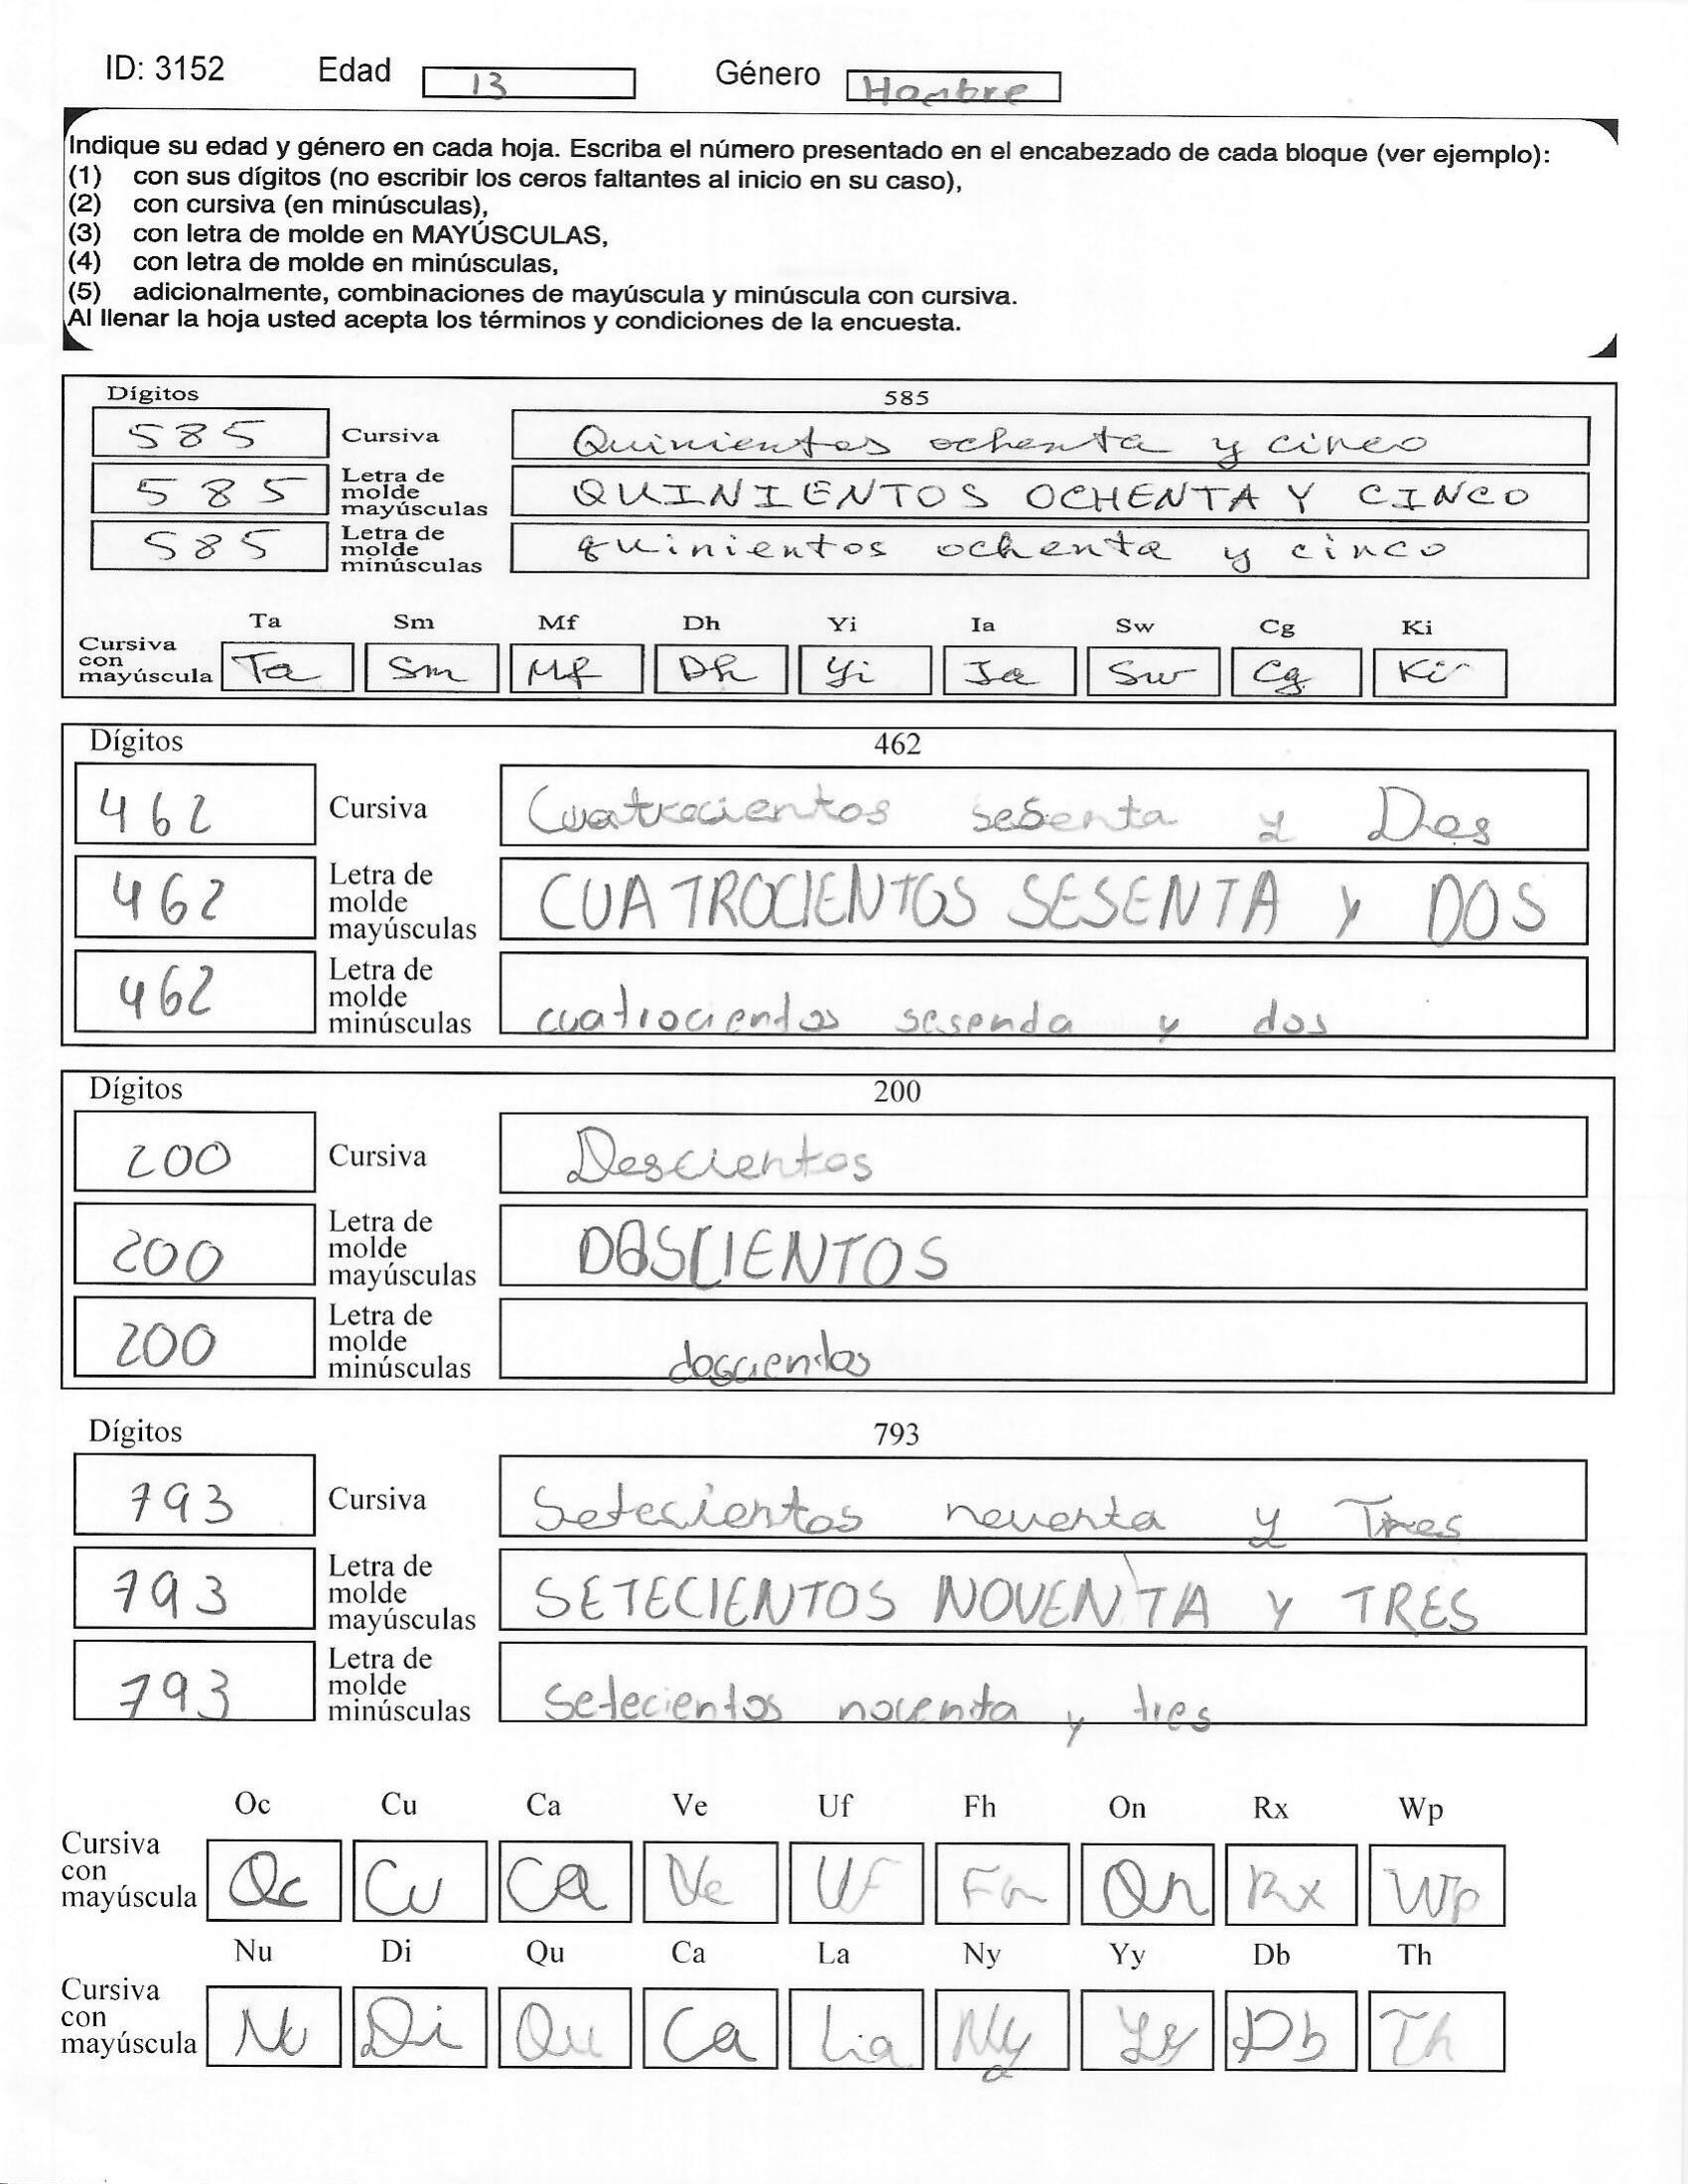 ID: 3152 Edad 13 Género Hombre
Indique su edad y género en cada hoja. Escriba el número presentado en el encabezado de cada bloque (ver ejemplo):
(1) con sus dígitos (no escribir los ceros faltantes al inicio en su caso),
(2) con cursiva (en minúsculas),
(3) con letra de molde en MAYÚSCULAS,
(4) con letra de molde en minúsculas,
(5) adicionalmente, combinaciones de mayúscula y minúscula con cursiva.
Al llenar la hoja usted acepta los términos y condiciones de la encuesta.
Dígitos 585
585 Cursiva Quinientos ochenta y cinco
585 Letra de molde mayúsculas QUINIENTOS OCHENTA Y CINCO
585 Letra de molde minúsculas quinientos ochenta y cinco
Ta Sm Mf Dh Yi Ia Sw Cg Ki
Cursiva con mayúscula Ta Sm Mf Dh Yi Ia Sw Cg Ki
Dígitos 462
462 Cursiva Cuatrocientos sesenta y Dos
462 Letra de molde mayúsculas CUATROCIENTOS SESENTA Y DOS
462 Letra de molde minúsculas cuatrocientos sesenda y dos
Dígitos 200
200 Cursiva Doscientos
200 Letra de molde mayúsculas DOSCIENTOS
200 Letra de molde minúsculas doscientos
Dígitos 793
793 Cursiva Setecientos noventa y Tres
793 Letra de molde mayúsculas SETECIENTOS NOVENTA Y TRES
793 Letra de molde minúsculas setecientos noventa y tres
Oc Cu Ca Ve Uf Fh On Rx Wp
Cursiva con mayúscula Oc Cu Ca Ve Uf Fh On Rx Wp
Nu Di Qu Ca La Ny Yy Db Th
Cursiva con mayúscula Nu Di Qu Ca La Ny Yy Db Th